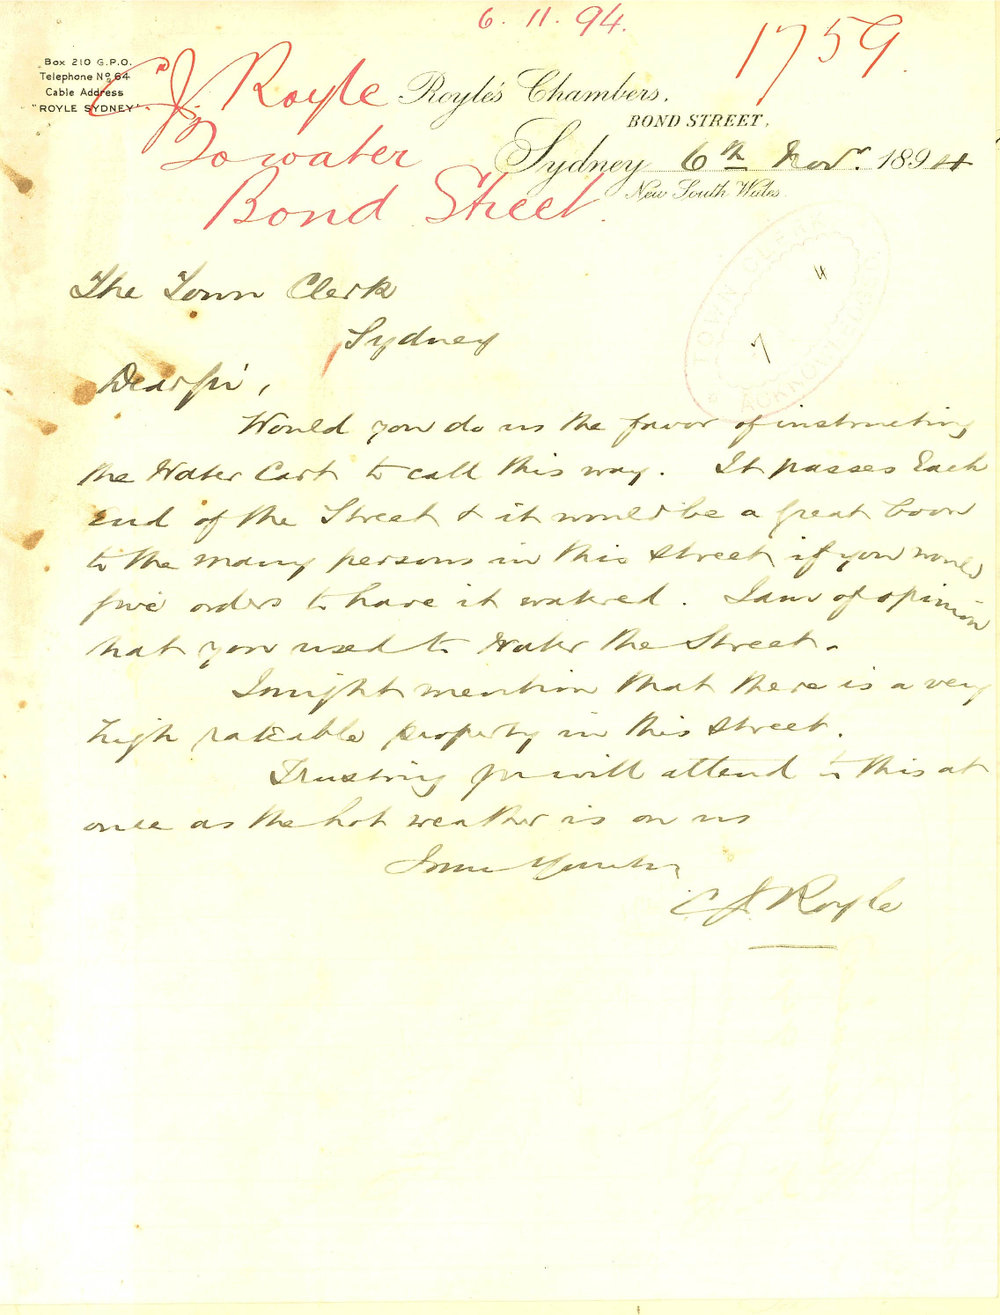 6. 11. 94.
1759.
Box 210 G.P.O.
Telephone No 64
Cable Address
"ROYLE SYDNEY"
C. J. Royle
To water
Bond Street.
Royle's Chambers,
BOND STREET,
Sydney 6th Novr. 1894
New South Wales
TOWN CLERK
7 11
ACKNOWLEDGED
The Town Clerk
Sydney
Dear Sir,
Would you do us the favor of instructing
the Water Cart to call this way. It passes Each
End of the Street & it would be a great boon
to the many persons in this street if you would
give orders to have it watered. I am of opinion
that you used to Water the Street.
I might mention that there is a very
high rateable property in this street.
Trusting you will attend to this at
once as the hot weather is on us
C J Royle